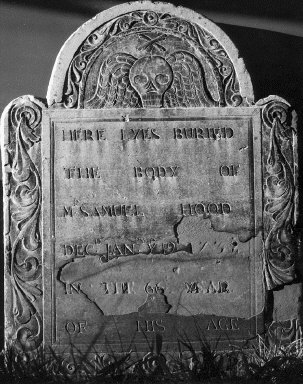 HERE LYES BURIED
THE BODY OF
Mr SAMUEL HOOD
DECd JAN
IN THE 66 YEAR
OF HIS AGE